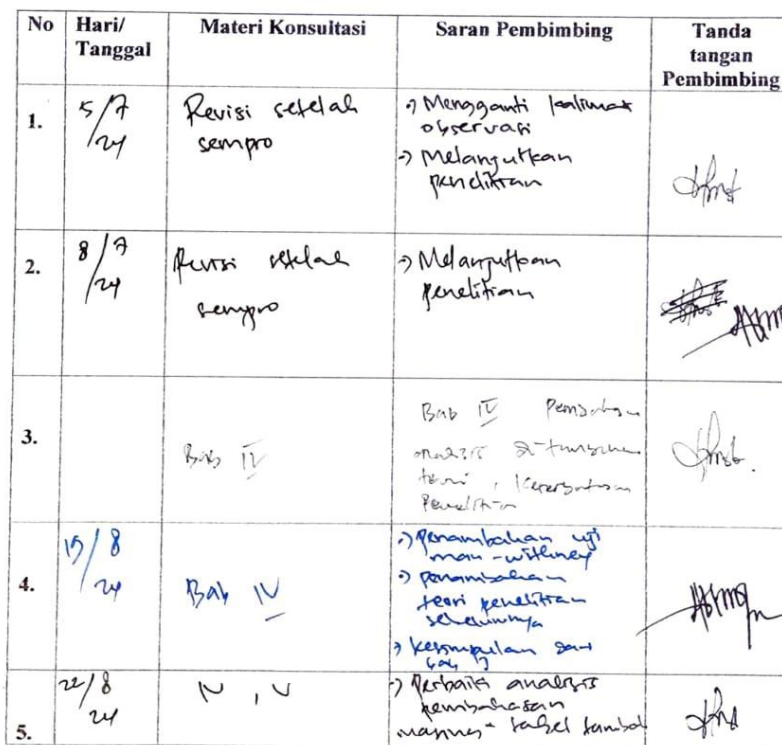 No Hari/ Tanggal Materi Konsultasi Saran Pembimbing Tanda tangan Pembimbing
1. 5/7/24 Revisi setelah sempro
-) Mengganti kalimat observasi
-) Melanjutkan penelitian
2. 8/7/24 Revisi setelah sempro
-) Melanjutkan penelitian
3. Bab IV
Bab IV Pembahasan
analisis
teori, Keterbatasan
Penelitian
4. 15/8/24 Bab IV
-) penambahan uji
man-withney
-) penambahan
teori penelitian
sebelumnya
-) kesimpulan
5. 22/8/24 IV, V
-) Perbaiki analisis
pembahasan
masing" tabel